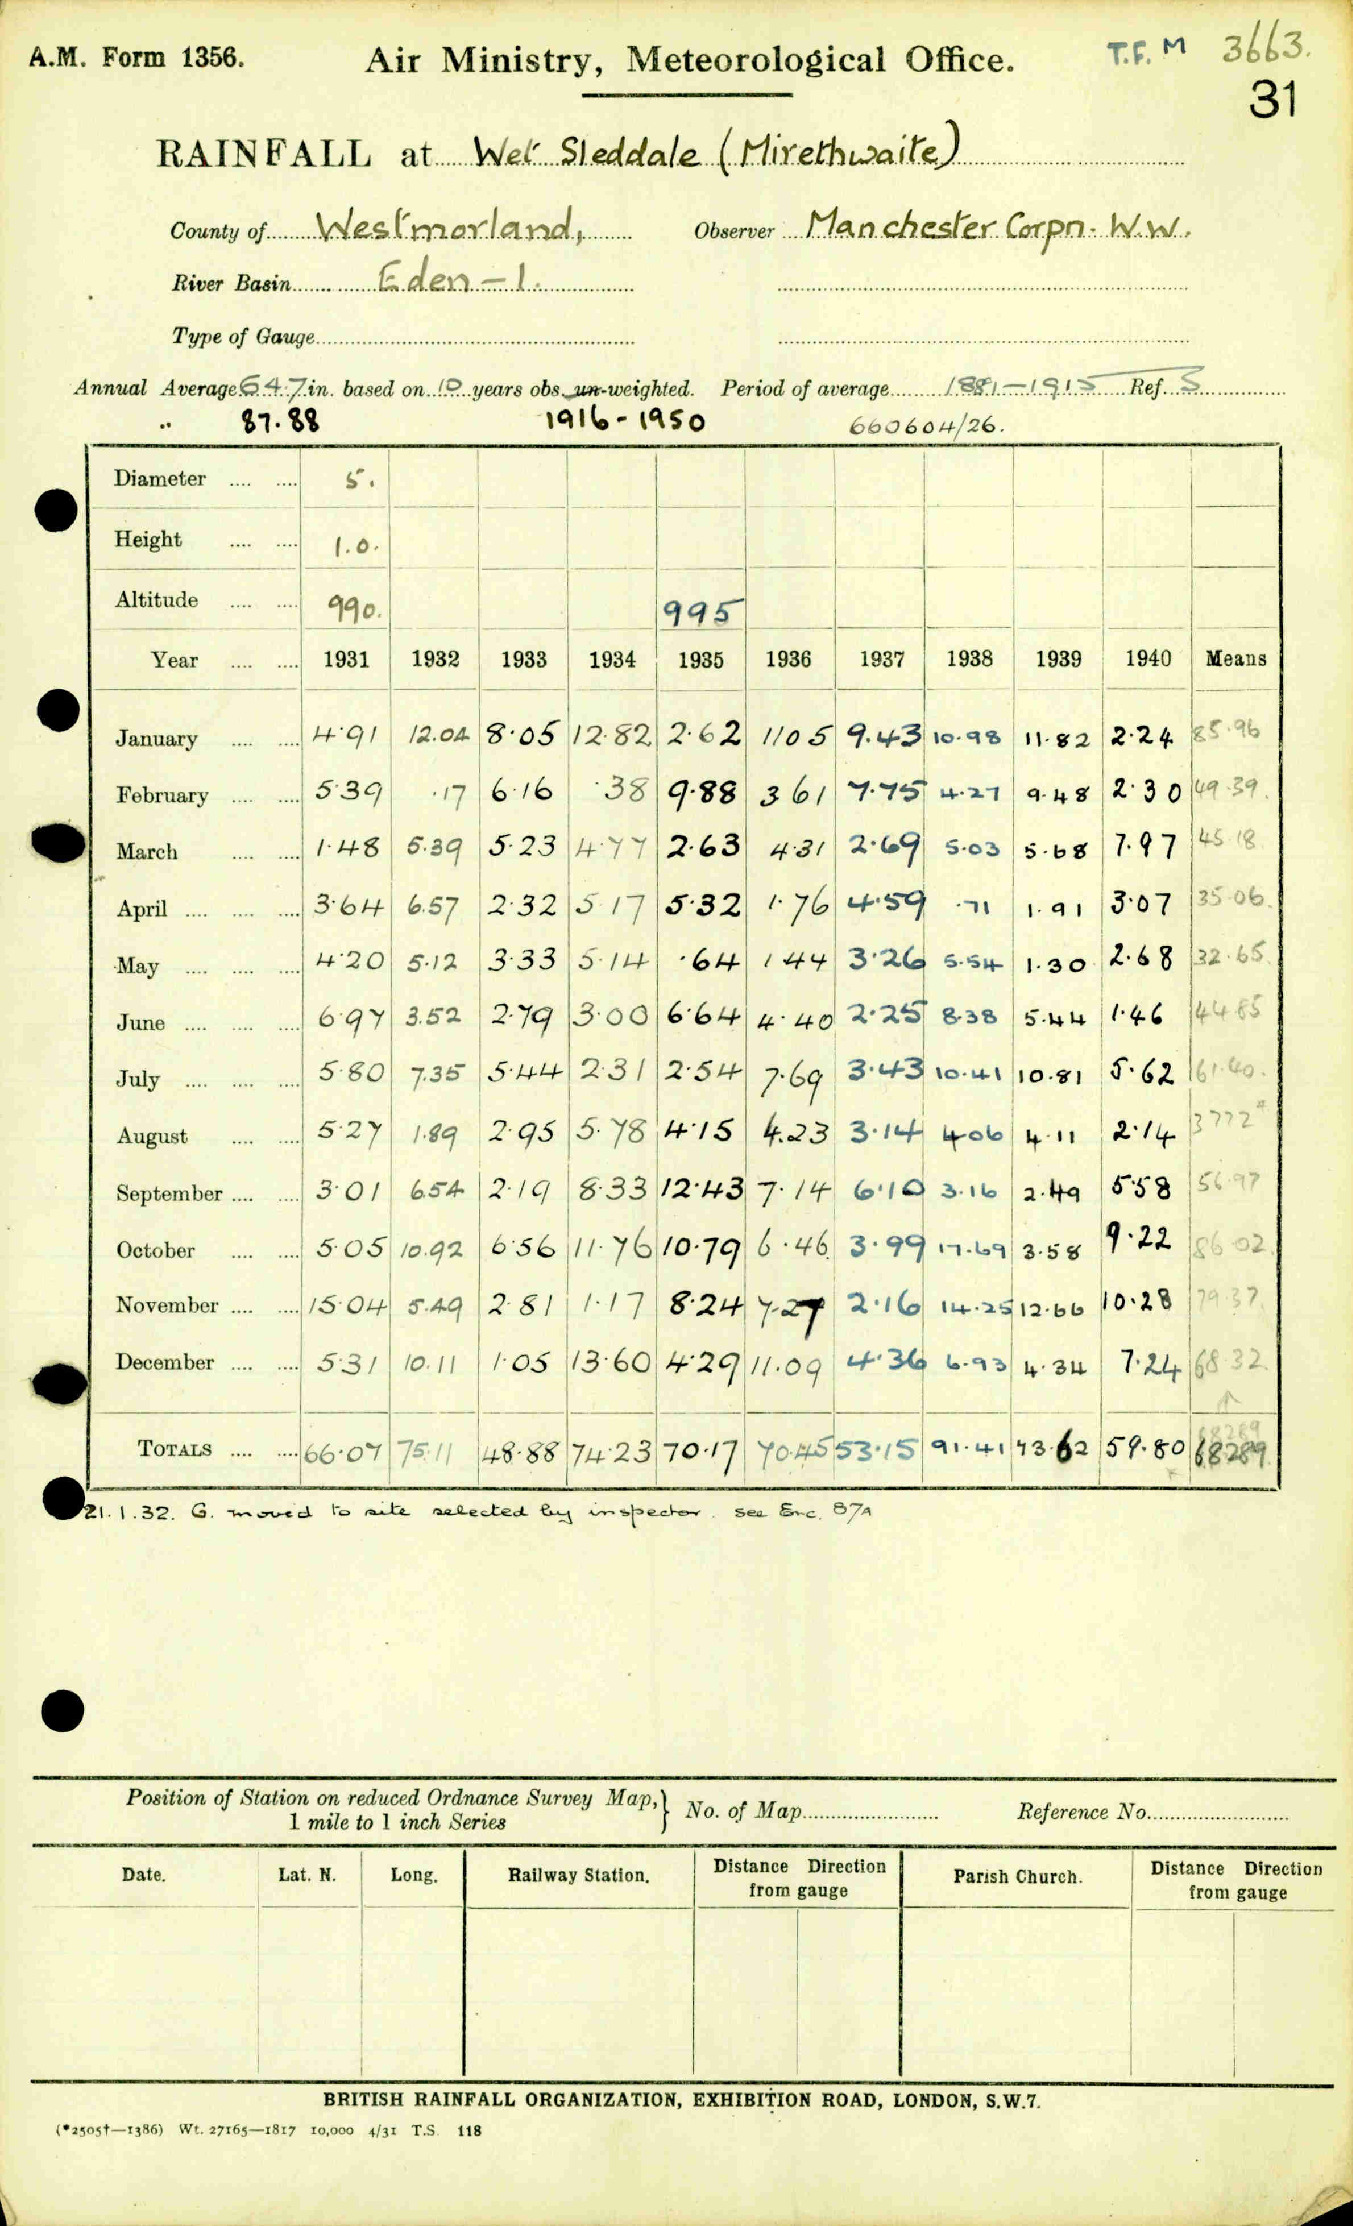 A.M. Form 1356. Air Ministry, Meteorological Office. T.F. M 3663.
31
RAINFALL at Wet Sleddale (Mirethwaite)
County of Westmorland, Observer Manchester Corpn. W.W.
River Basin Eden - 1.
Type of Gauge
Annual Average 64.7 in. based on 10 years obs. un-weighted. Period of average 1881-1915 Ref. S
" 87.88 1916-1950 660604/26.
Diameter .... .... 5.
Height .... .... 1.0.
Altitude .... .... 990. 995
Year .... .... 1931 1932 1933 1934 1935 1936 1937 1938 1939 1940 Means
January .... .... 4.91 12.04 8.05 12.82 2.62 11 05 9.43 10.98 11.82 2.24 85.96
February .... .... 5.39 .17 6.16 .38 9.88 3 61 7.75 4.27 9.48 2.30 49.39.
March .... .... 1.48 5.39 5.23 4.77 2.63 4.31 2.69 5.03 5.68 7.97 45.18
April .... .... .... 3.64 6.57 2.32 5.17 5.32 1.76 4.59 .71 1.91 3.07 35.06.
May .... .... .... 4.20 5.12 3.33 5.14 .64 1 44 3.26 5.54 1.30 2.68 32.65.
June .... .... .... 6.97 3.52 2.79 3.00 6.64 4.40 2.25 8.38 5.44 1.46 44.85
July .... .... .... 5.80 7.35 5.44 2.31 2.54 7.69 3.43 10.41 10.81 5.62 61.40.
August .... .... 5.27 1.89 2.95 5.78 4.15 4.23 3.14 4.06 4.11 2.14 3772*
September .... .... 3.01 6.54 2.19 8.33 12.43 7.14 6.10 3.16 2.49 5.58 56.97
October .... .... 5.05 10.92 6.56 11.76 10.79 6.46 3.99 17.69 3.58 9.22 86.02.
November .... .... 15.04 5.49 2.81 1.17 8.24 7.27 2.16 14.25 12.66 10.28 79.37.
December .... .... 5.31 10.11 1.05 13.60 4.29 11.09 4.36 6.93 4.34 7.24 68.32.
68289
TOTALS .... .... 66.07 75.11 48.88 74.23 70.17 70.45 53.15 91.41 73.62 59.80 68289
21.1.32. G. moved to site selected by inspector. see Enc. 87A
Position of Station on reduced Ordnance Survey Map, } No. of Map Reference No.
1 mile to 1 inch Series
Date. Lat. N. Long. Railway Station. Distance Direction Parish Church. Distance Direction
from gauge from gauge
BRITISH RAINFALL ORGANIZATION, EXHIBITION ROAD, LONDON, S.W.7.
(*2505†—1386) Wt. 27165—1817 10,000 4/31 T.S. 118